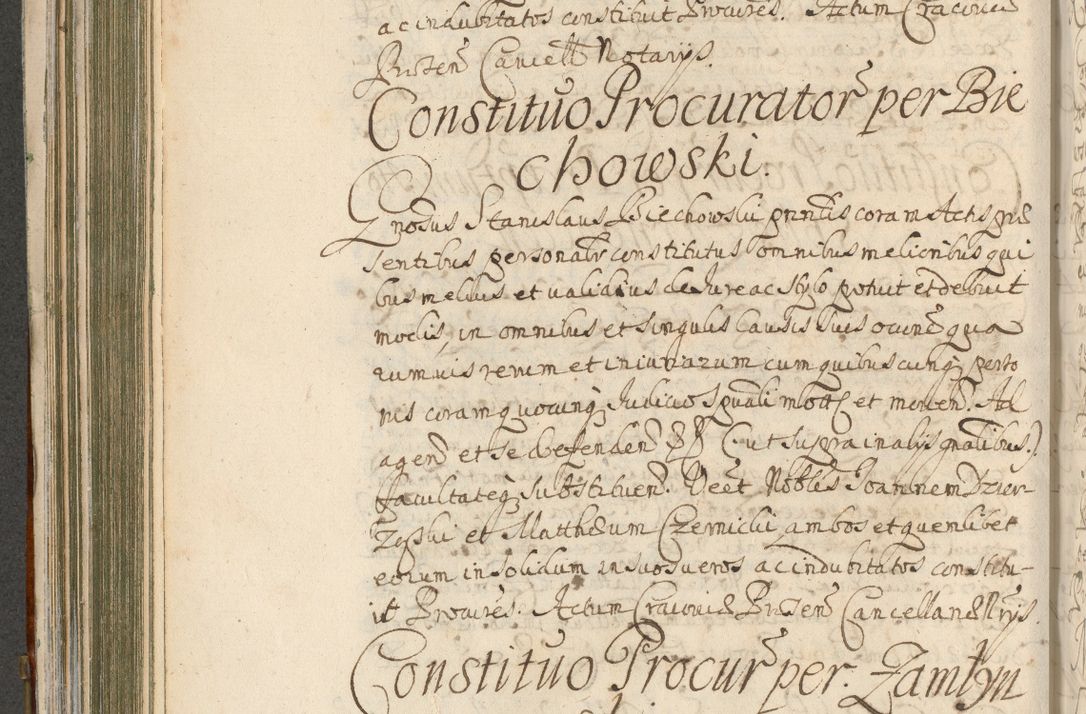 ac indubitatos constituit Procures. Actum Cracoviæ
Præsen Cancell Notariis.
Constituo Procurator per Bie
chowski.
Gnosus Stanislaus Biechowski coram Actis præ
sentibus personalr constitutus omnibus melioribus qui
bus melius et validius de Jure ac stylo potuit et debuit
modis, in omnibus et singulis causis suis
rumvis rerum et iniuriarum cum quibuscunq perso
nis coram quocunq Judicio motis et moven. Ad
agen et se defenden (ut supra in alijs gnalibus.)
facultateq substituen. Neet Nobles Joannem Dzier-
et Matthæum Czernicki ambos et quemlibet
eorum in solidum in suos veros ac indubitatos constitu-
it Procures. Actum Cracoviæ Præsen Cancellan
Constituo Procur per. Zambrzu